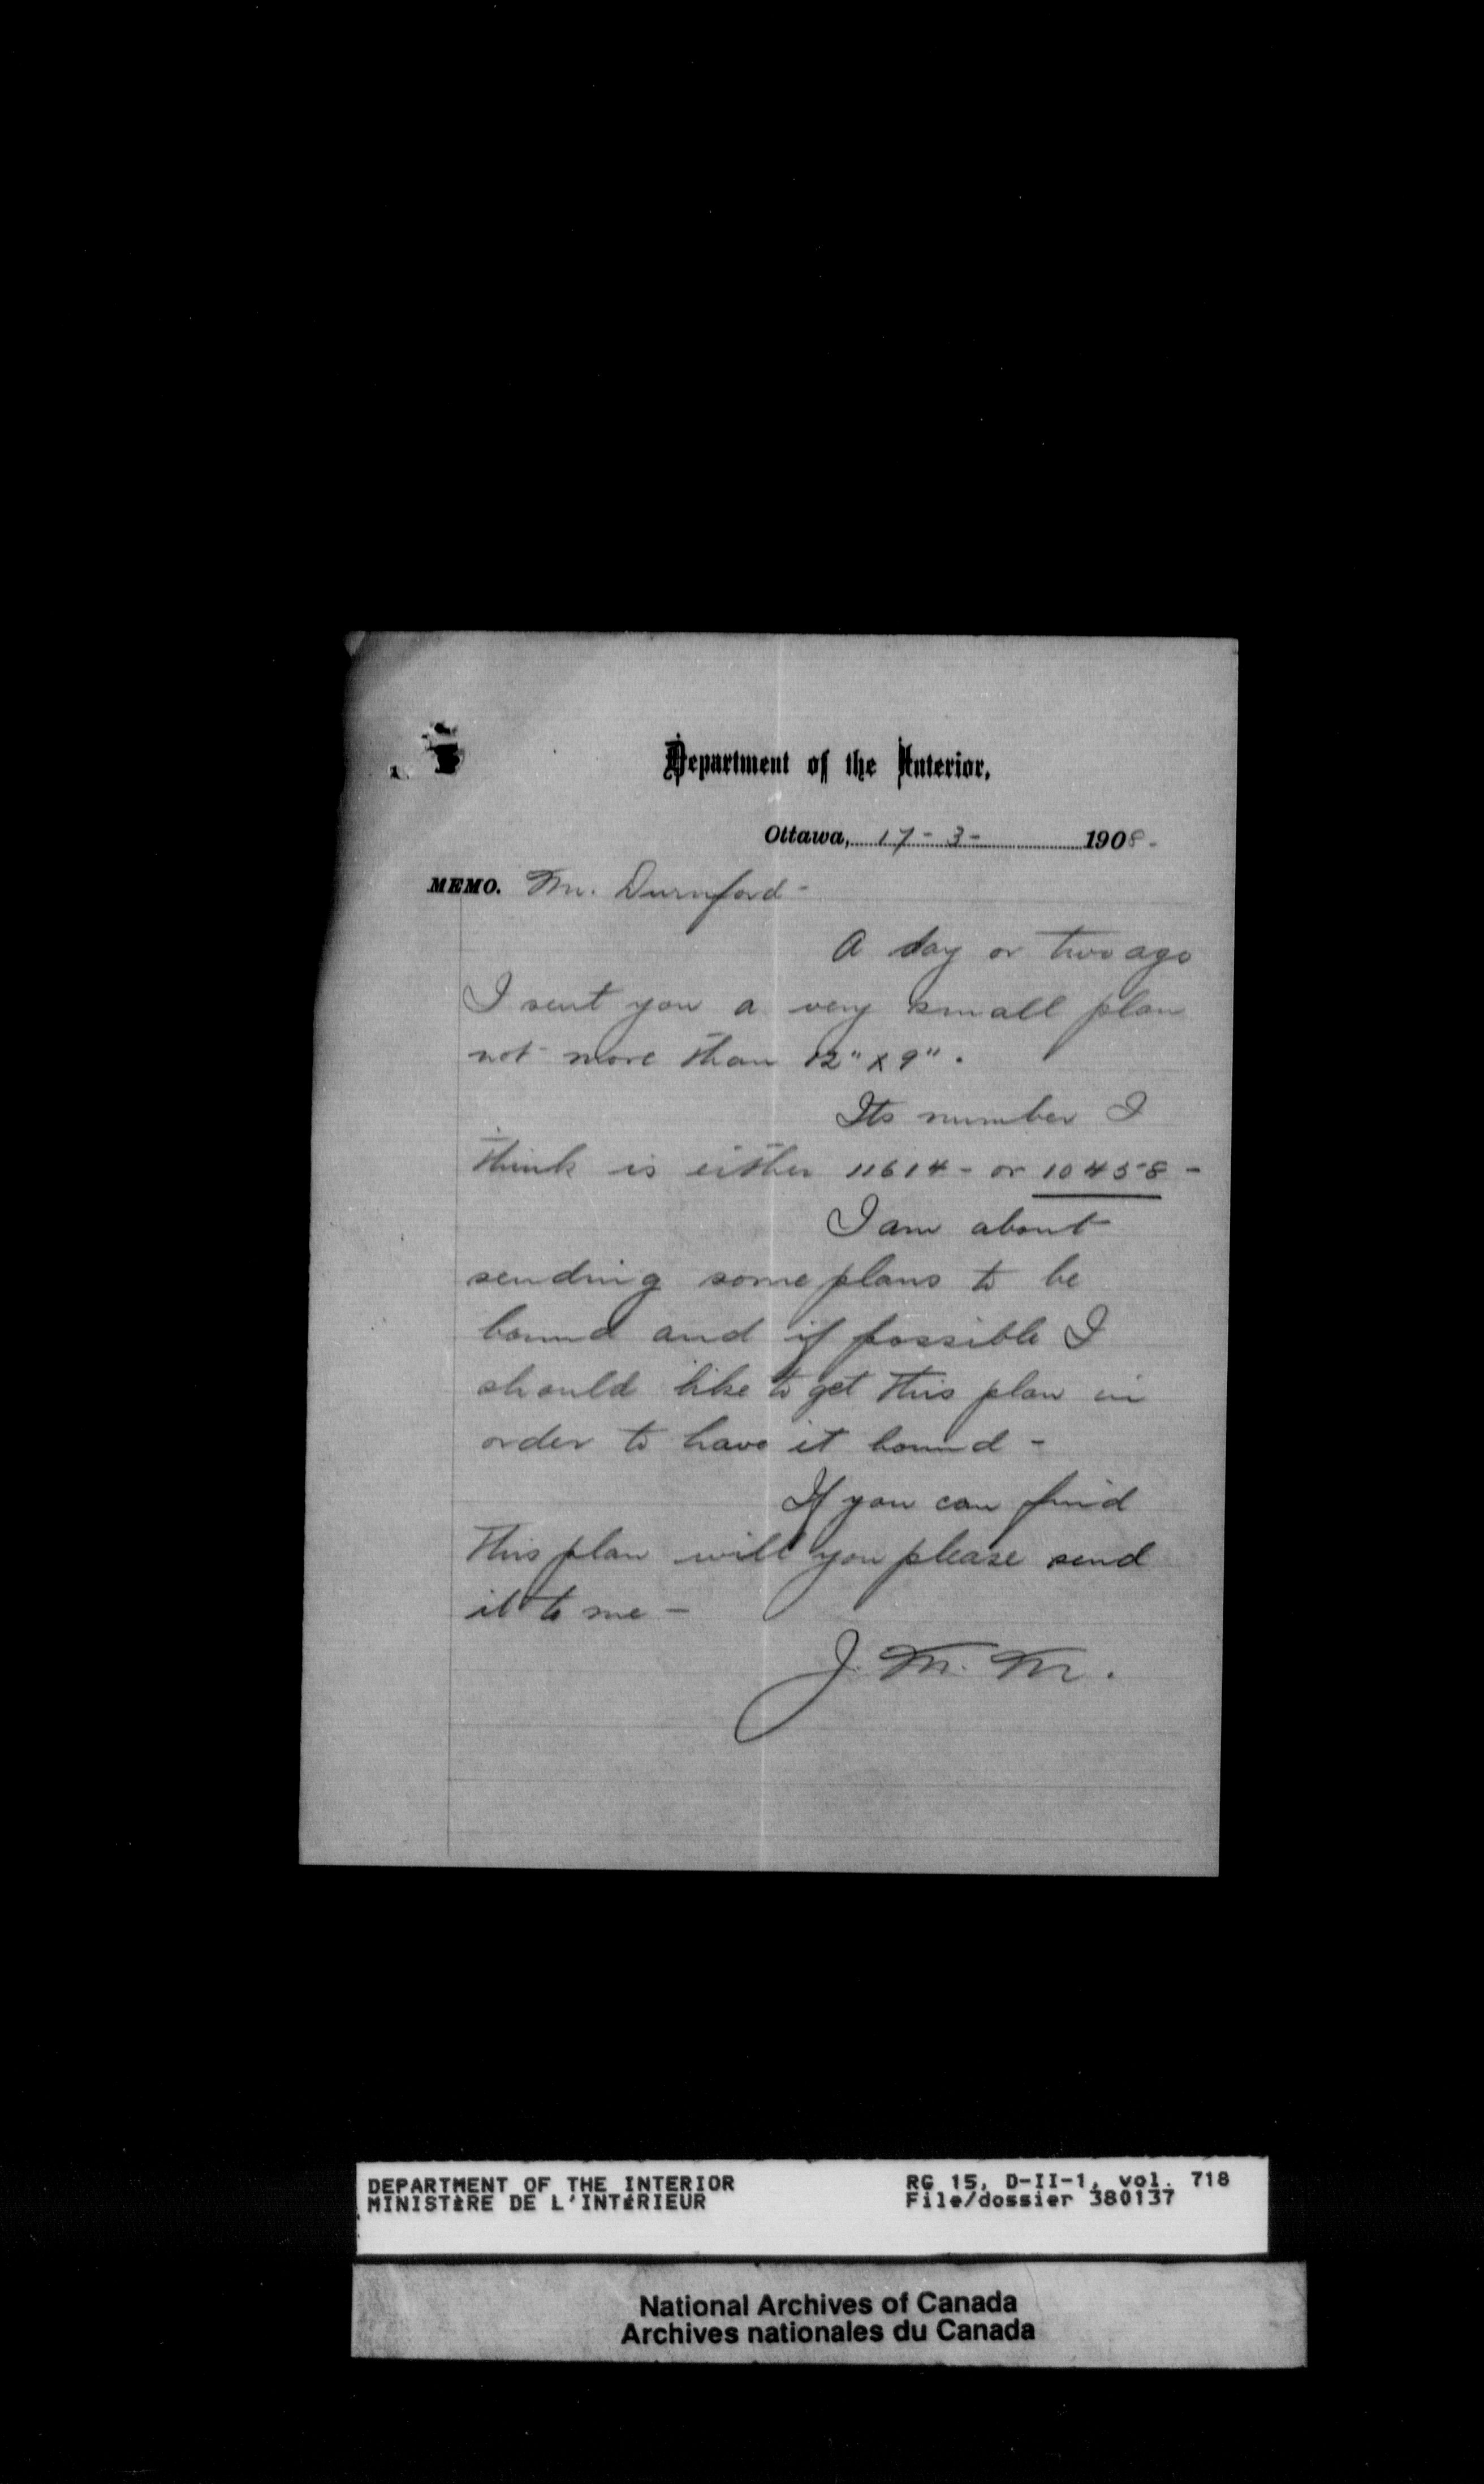 Department of the Interior,
Ottawa, 17-3- 1908-
MEMO. Mr. Durnford-
A day or two ago
I sent you a very small plan
not more than 12" x 9".
Its number I
think is either 11614- or 10458-
I am about
sending some plans to be
bound and if possible I
should like to get this plan in
order to have it bound-
If you can find
this plan will you please send
it to me-
J. M. M.
DEPARTMENT OF THE INTERIOR RG 15, D-II-1, vol. 718
MINISTÈRE DE L'INTÉRIEUR File/dossier 380137
National Archives of Canada
Archives nationales du Canada